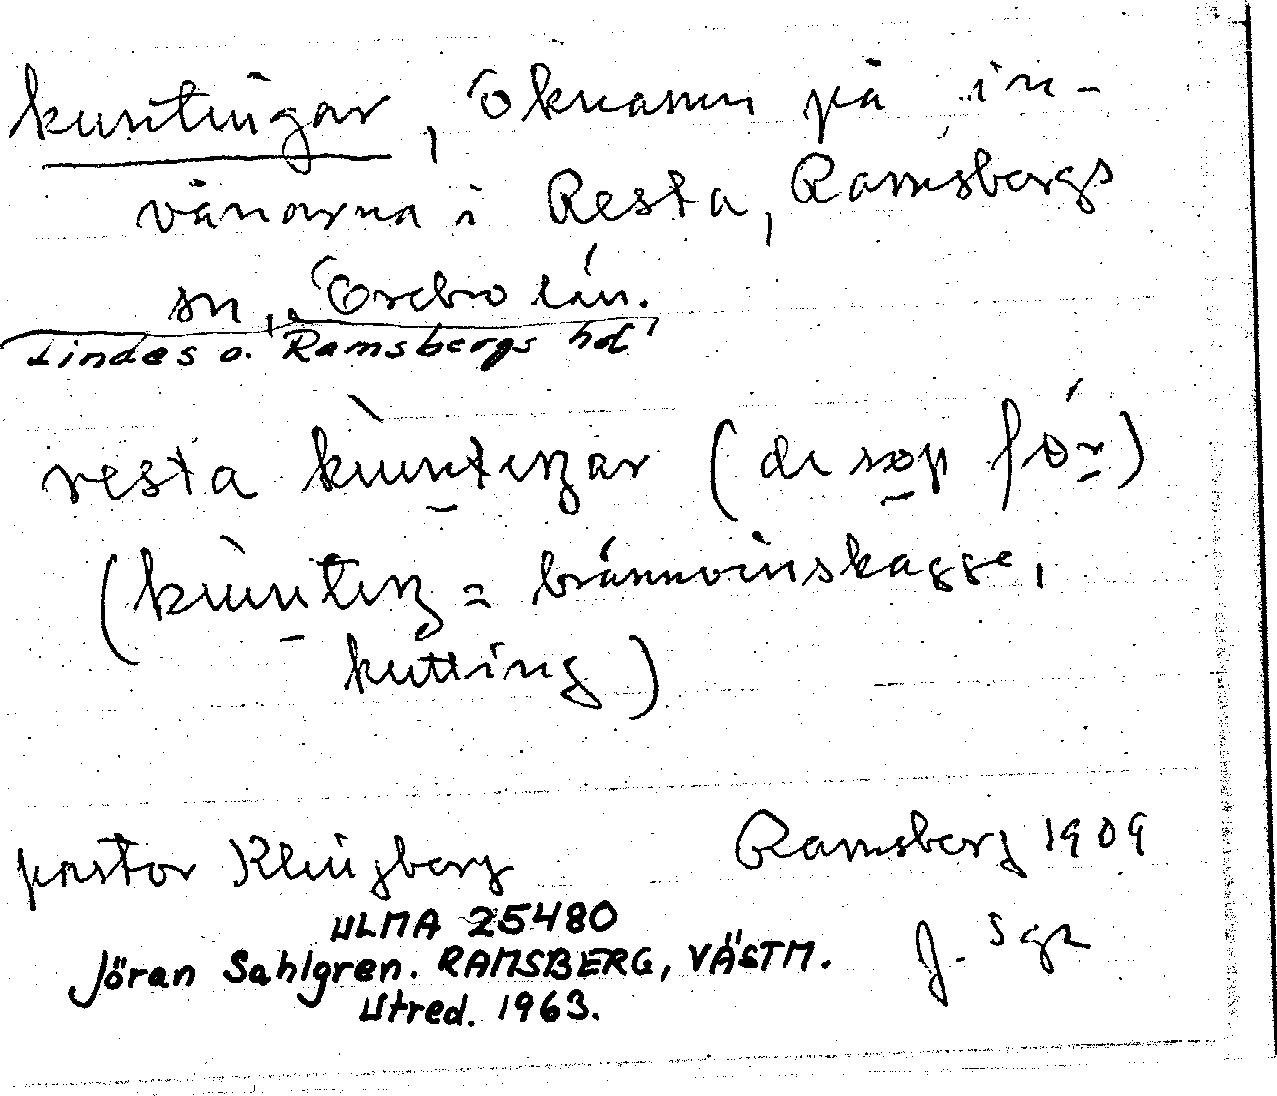 kuntingar, öknamn på in-
vånarna i Resta, Ramsbergs
sn, Örebro län.
Lindes o. Ramsbergs hd
resta kùntiŋar (di söp för)
(kùntiŋ = brännvinskagge,
kutting)
pastor Klingberg Ramsberg 1909
ULMA 25480 J. Sgn
Jöran Sahlgren. RAMSBERG, VÄSTM.
Utred. 1963.